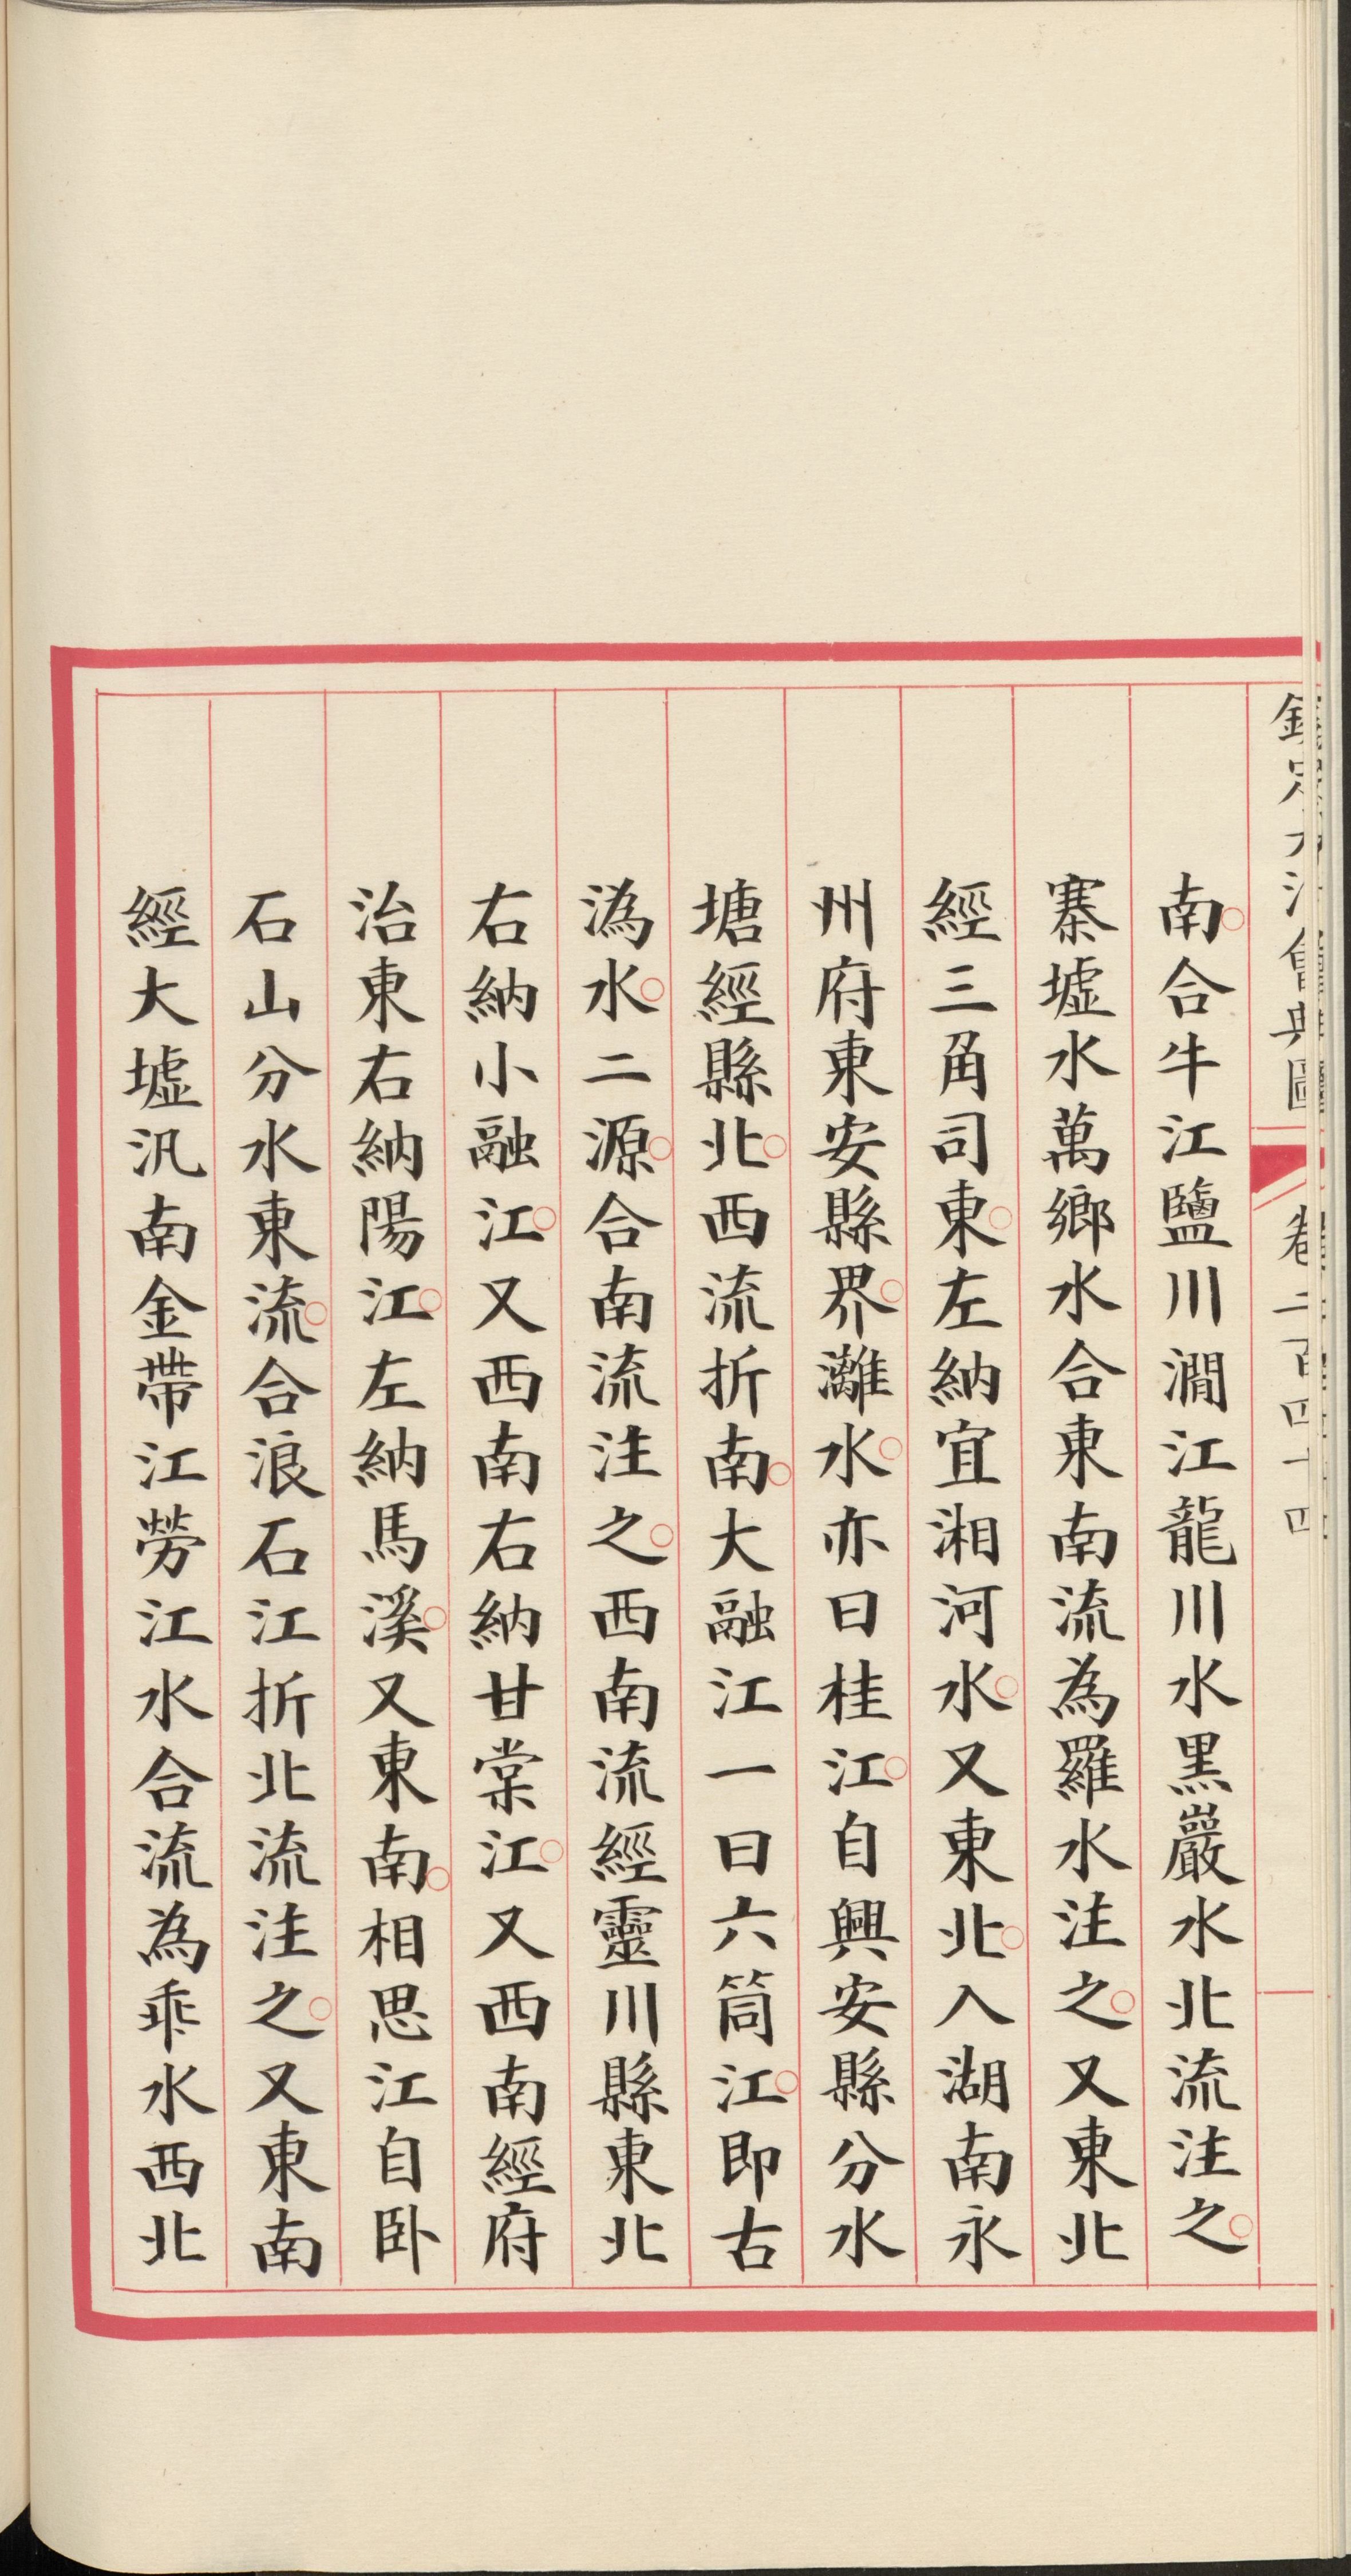 南合牛江鹽川澗江龍川水黑巖水北流注之
寨墟水萬鄉水合東南流為羅水注之又東北
經三角司東左納宜湘河水又東北入湖南永
州府東安縣界灕水亦曰桂江自興安縣分水
塘經縣北西流折南大融江一曰六筒江即古
溈水二源合南流注之西南流經靈川縣東北
右納小融江又西南右納甘棠江又西南經府
治東右納陽江左納馬溪又東南相思江自卧
石山分水東流合浪石江折北流注之又東南
經大墟汛南金帶江勞江水合流為乖水西北